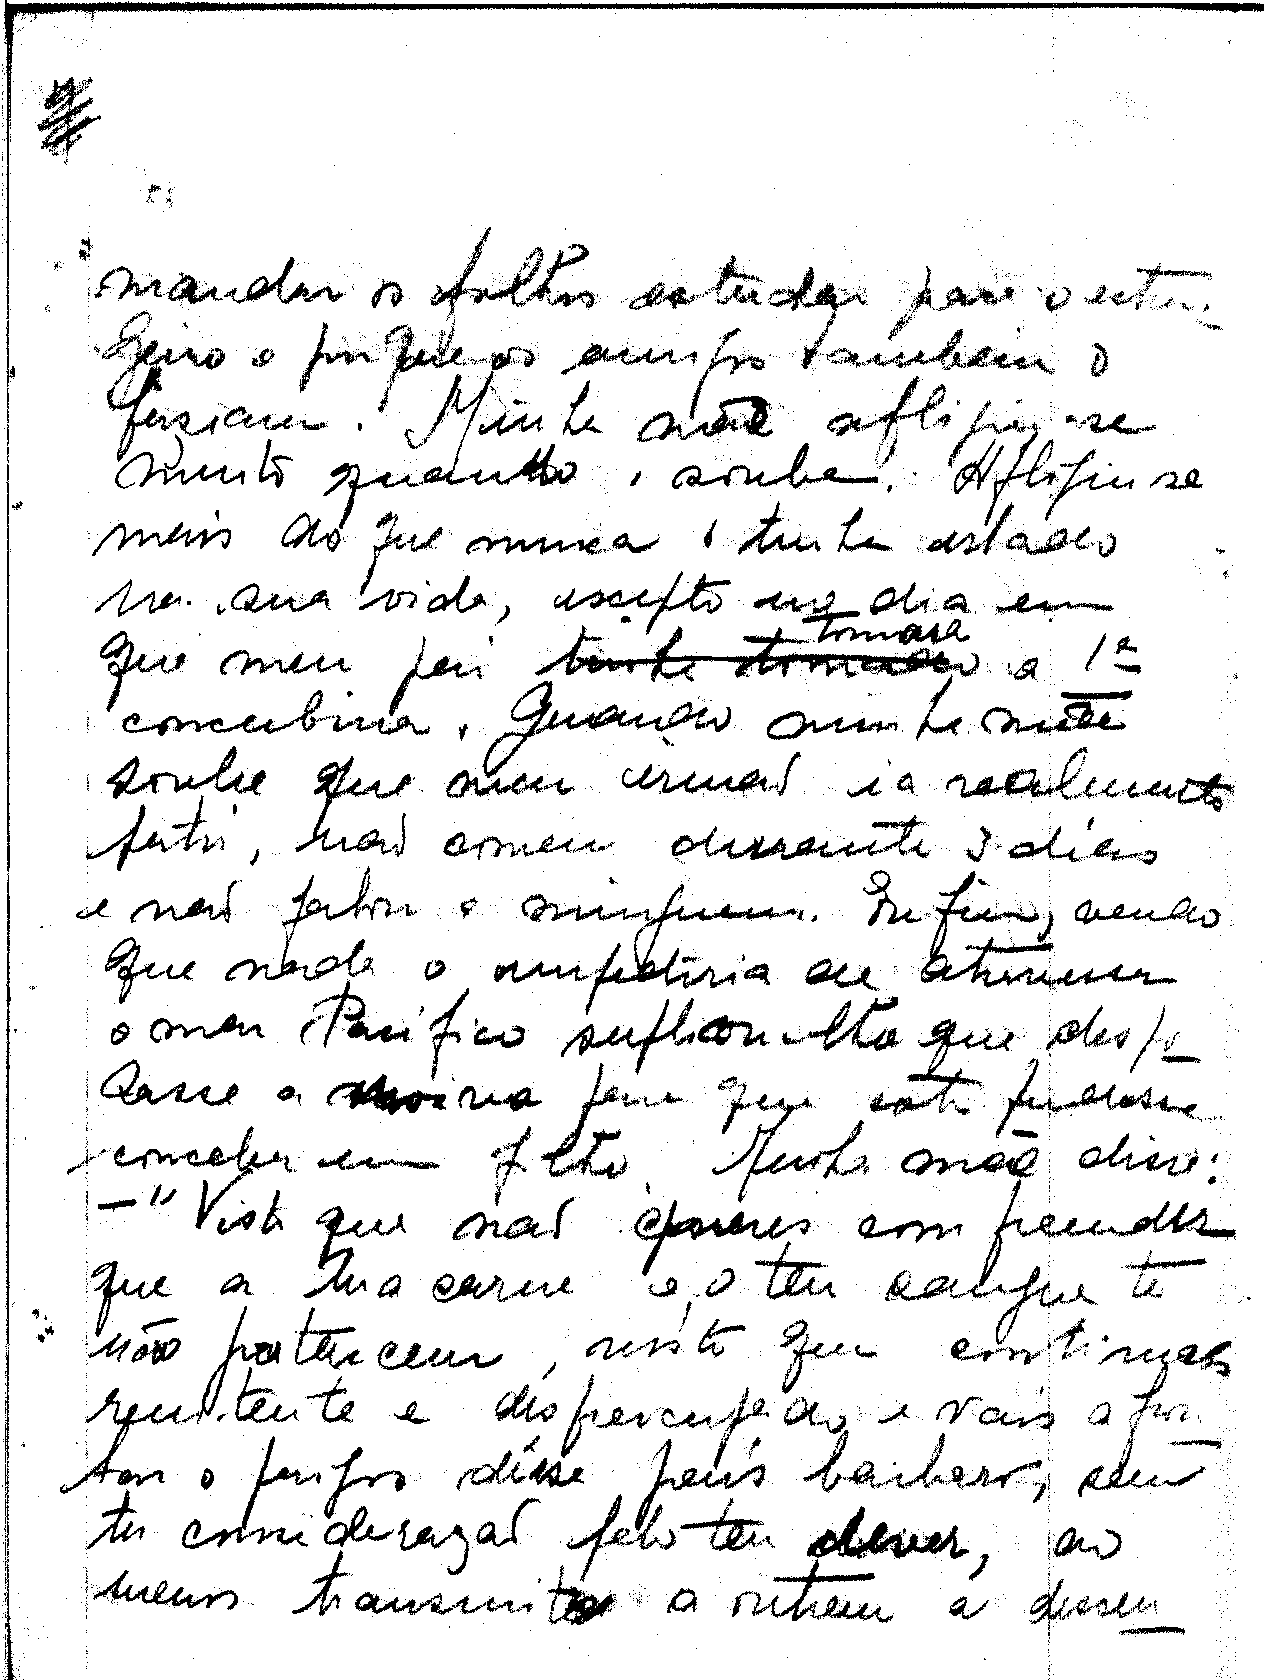 mandar os filhos estudar para o estran-
geiro e porque os amigos tambem o
faziam. Minha mãe afligiu-se
muito quando o soube. Afligiu-se
mais do que nunca o tinha estado
na sua vida, excepto no dia em
que meu pai tinha tomado tomara a 1ª
concubina. Quando minha mãe
soube que meu irmaõ ia realmente
partir, naõ comeu durante 3 dias
e naõ falou a ninguem. Enfim, vendo
que nada o impediria de atravessar
o mar Pacífico suplicou-lhe que despo-
sasse a noiva para que esta pudesse
conceber um filho. Minha mãe disse:
—"Visto que naõ queres compreender
que a tua carne e o teu sangue te
não pertencem, visto que continuas
renitente e despreocupado e vais afron-
tar o perigo dêsse país barbaro, sem
ter consideraçaõ pelo teu dever, ao
menos transmite a outrem a descen-